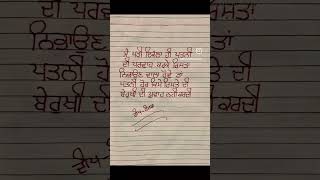 ਜੇ ਪਤੀ ਇਕੱਲਾ ਹੀ ਪਤਨੀ
ਦੀ ਪਰਵਾਹ ਕਰਕੇ ਰਿਸ਼ਤਾ
ਨਿਭਾਉਣ ਵਾਲਾ ਹੋਵੇ ਤਾਂ
ਪਤਨੀ ਹੋਰ ਕਿਸੇ ਰਿਸ਼ਤੇ ਦੀ
ਬੇਰੁਖੀ ਦੀ ਪ੍ਰਵਾਹ ਨਹੀਂ ਕਰਦੀ